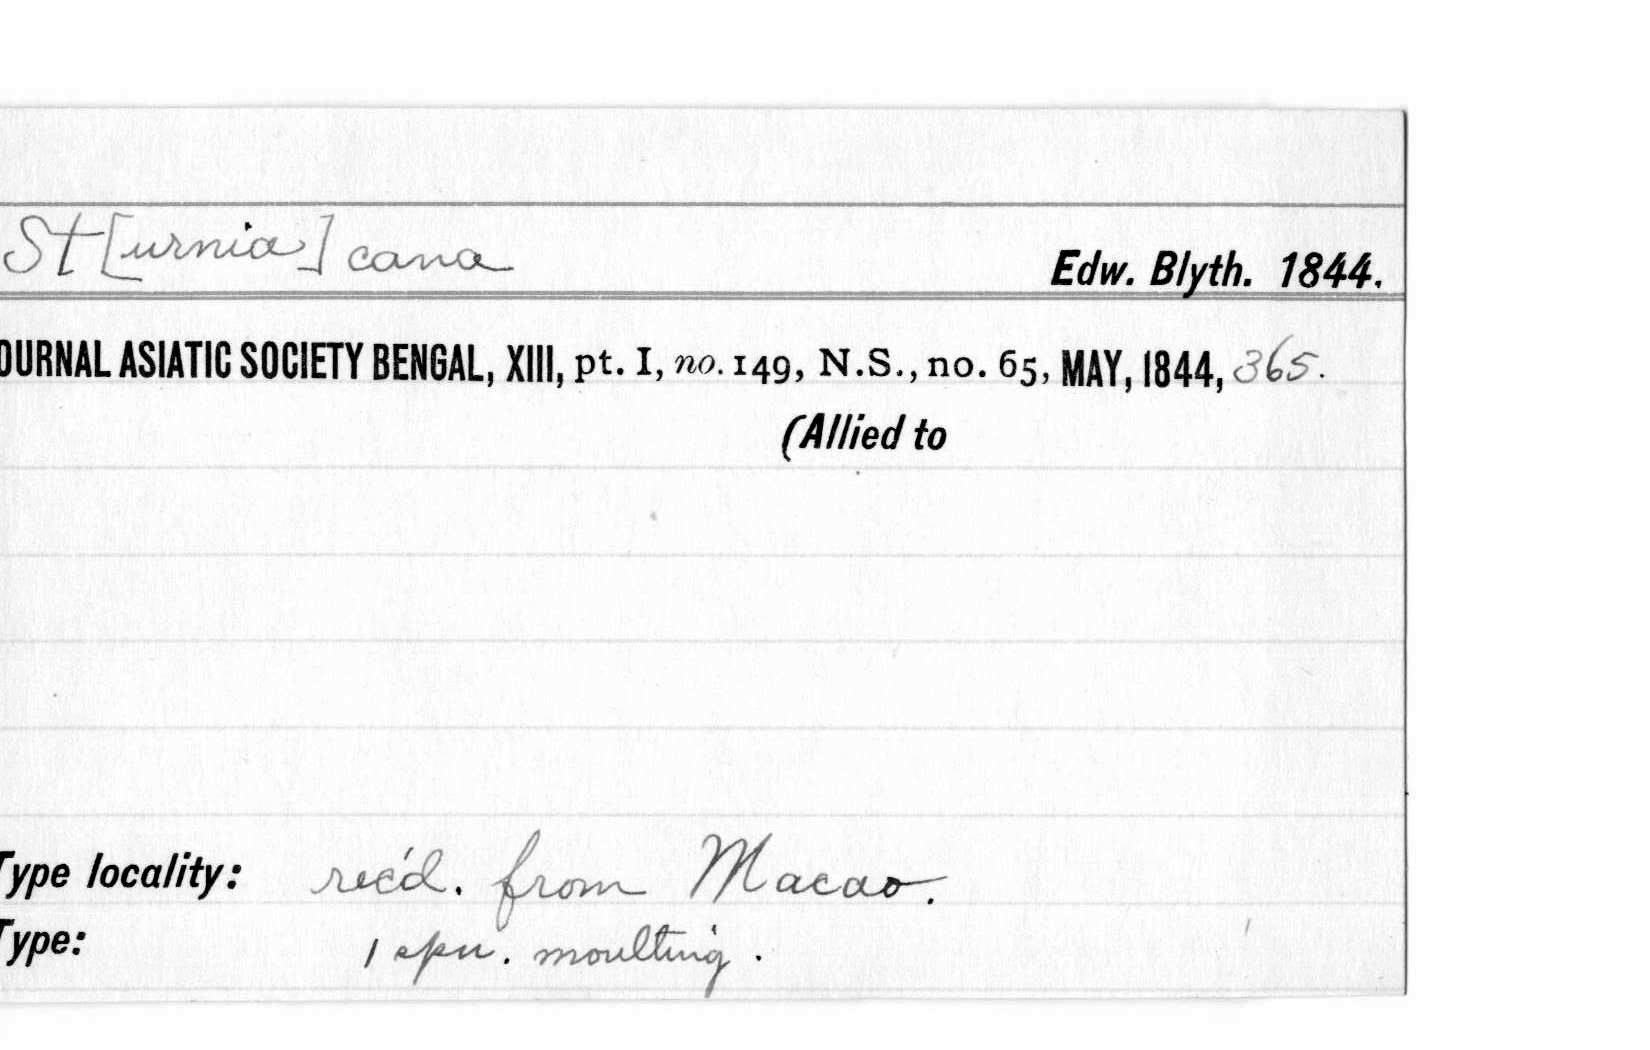 St[urnia] cana
Edw. Blyth. 1844.
OURNAL ASIATIC SOCIETY BENGAL, XIII, pt. I, no. 149, N.S., no. 65, MAY, 1844, 365.
(Allied to
Type locality: rec'd. from Macao.
Type: 1 spn. moulting.